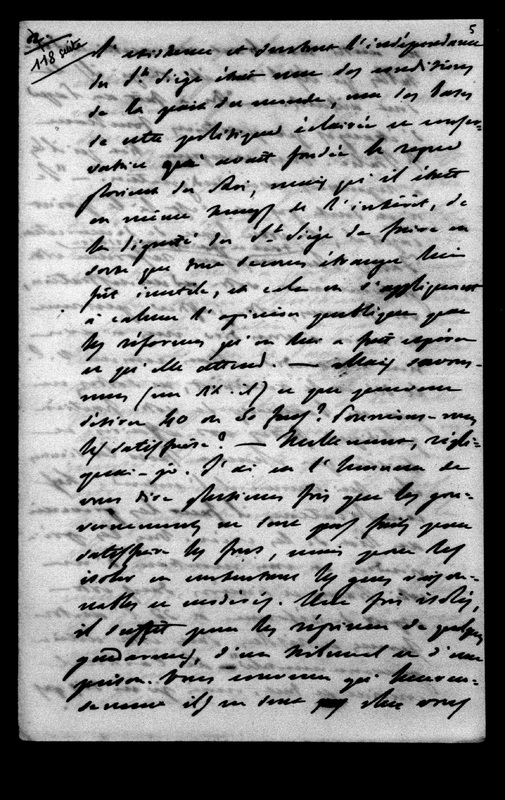 5
118 suite
l'existence et surtout l'indépendance
du St Siège était une des conditions
de la paix du monde, une des bases
de cette politique éclairée et conser-
vatrice qui avait fondé le règne
glorieux du Roi, mais qu'il était
en même temps de l'intérêt, de
la dignité du St Siège de faire en
sorte que tout secours étranger lui
fût inutile, et cela en s'appliquant
à calmer l'opinion publique par
les réformes qu'on lui a fait espérer
et qu'elle attend. — Mais savons-
nous (me dit-il) ce que pensent
40 ou 50 fous? Pourrions-nous
les satisfaire? — Nullement, répli-
quai-je. J'ai eu l'honneur de
vous dire plusieurs fois que les gou-
vernements ne sont pas faits pour
satisfaire les fous, mais pour les
isoler en contentant les gens raison-
nables et modérés. Une fois isolés,
il suffit pour les réprimer de quelques
gendarmes, d'un tribunal et d'une
prison. Vous convenez qu'heureu-
sement ils ne sont pas chez vous